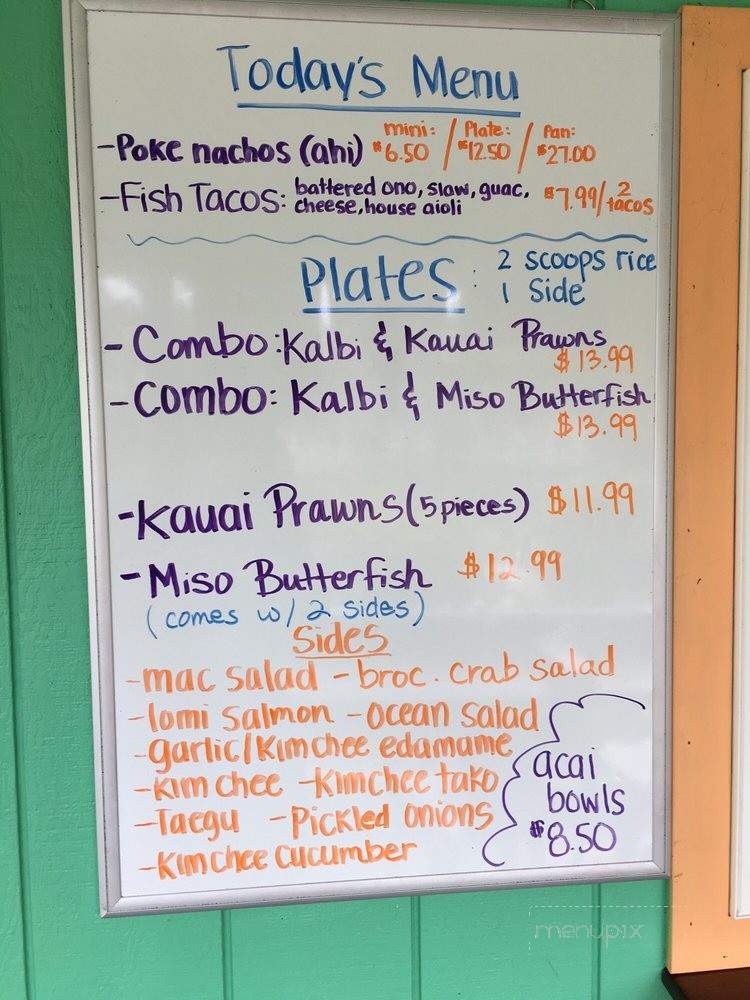 Today's Menu
-Poke nachos (ahi) mini: $6.50 / Plate: $12.50 / Pan: $27.00
-Fish Tacos: battered ono, slaw, guac, cheese, house aioli $7.99/2 tacos
Plates: 2 scoops rice
1 Side
- Combo: Kalbi & Kauai Prawns
$13.99
- Combo: Kalbi & Miso Butterfish
$13.99
-Kauai Prawns (5 pieces) $11.99
-Miso Butterfish $12.99
(comes w/ 2 sides)
Sides
-mac salad -broc. crab salad
-lomi salmon -ocean salad
-garlic/Kimchee edamame
-Kim chee -Kimchee tako
-Taegu -Pickled onions
-Kimchee cucumber
acai
bowls
$8.50
menupix